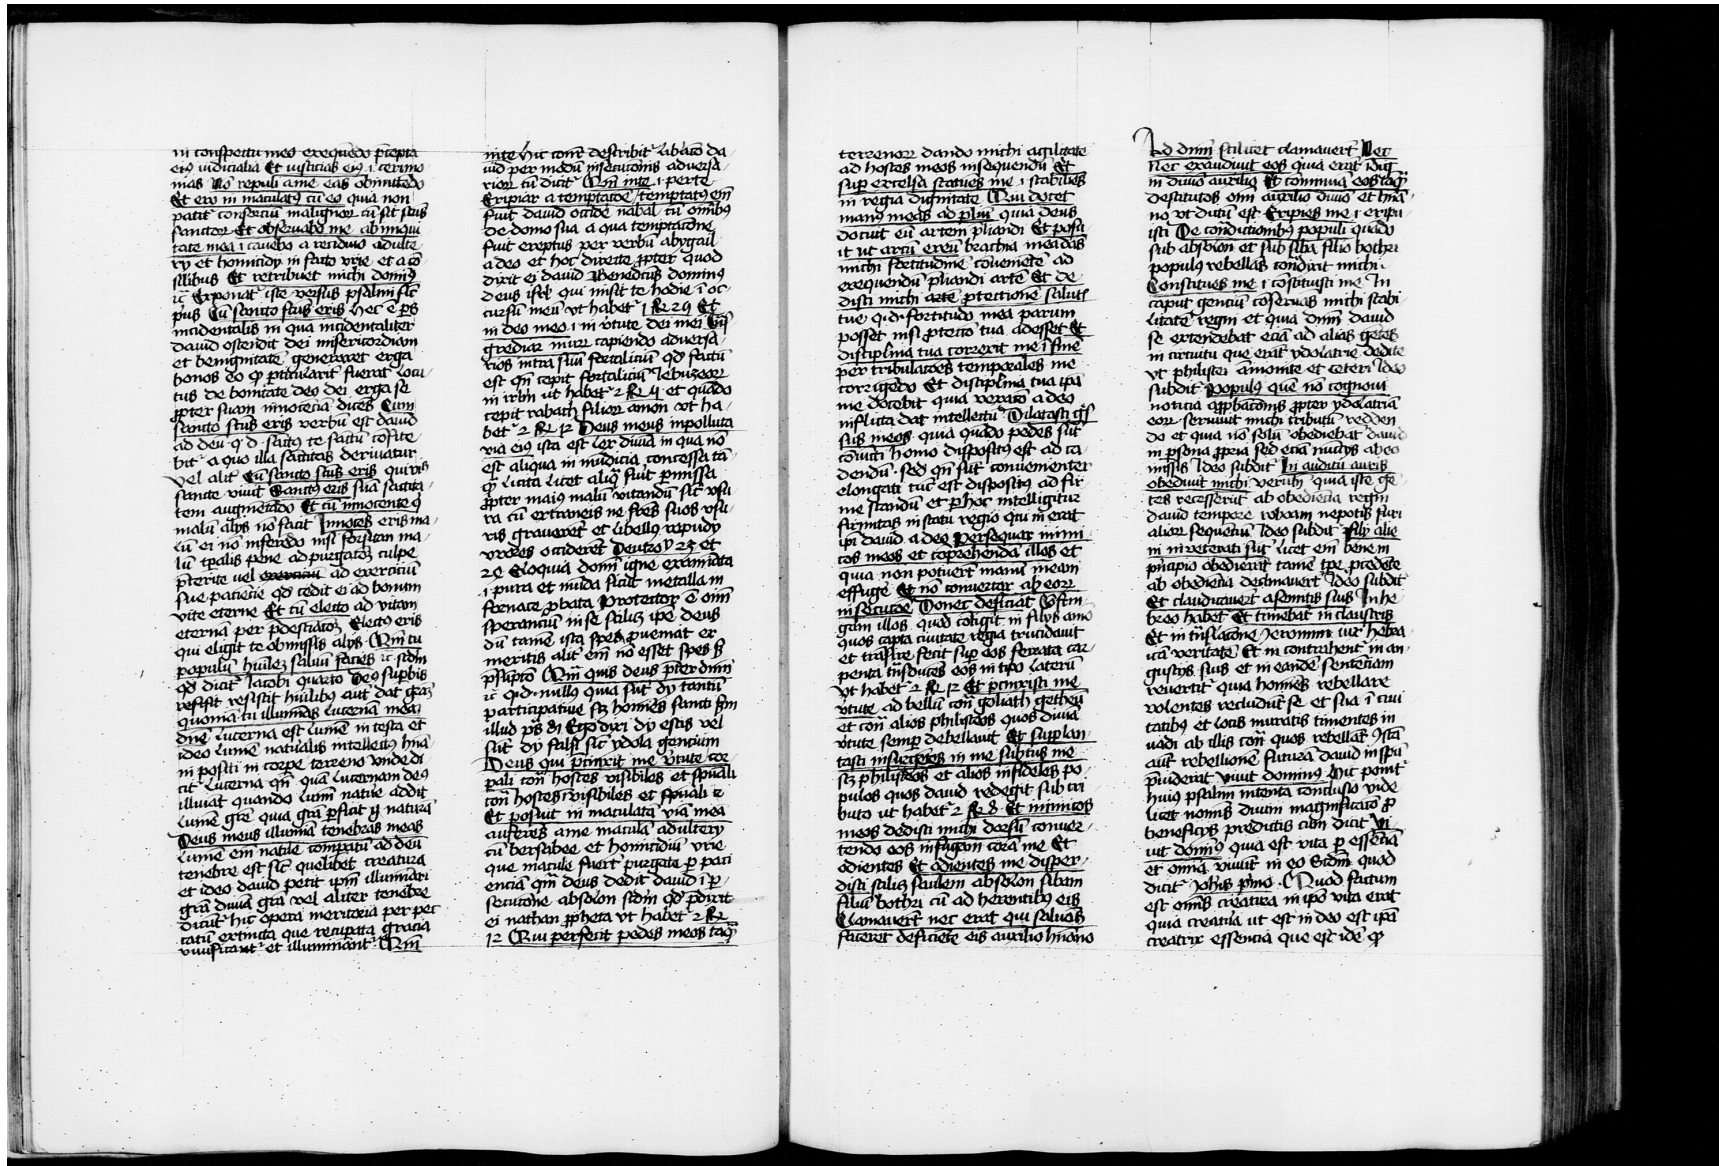 in conspectu meo exequẽdo p̃cepta
eiꝰ iudicialia Et iusticias eiꝰ .i. cerimo
nias Nõ repuli a me eas obmittẽdo
Et ero in maculatꝰ cũ eo quia non
patit᷑ consorciũ malignoꝝ cũ sit scũs
sanctoꝝ Et obseruabo me ab iniqui
tate mea .i. cauebo a recidiuo adulte
rij et homicidij in facto vrie et a cõ
silibus Et retribuet michi dominꝰ
⁊c Exponat᷑ iste versus psalmi sic̃
pus Cũ sancto scũs eris hec ẽ p̃s
incidentalis in qua incidentaliter
dauid ostendit dei misericordiam
et benignitatẽ generare erga
bonos eo qꝫ p̱ticularit᷑ fuerat locu
tus de bonitate deo dei erga se
ꝓpter suam innocẽciã dicẽs Cum
sancto scũs eris verbũ est dauid
ad deũ q.d. sanctꝰ te sanctũ cõstite
bit a quo illa sanctitas deriuatur
vel alit᷑ Cũ sancto scũs eris qui vis
sancte viuit Sanctꝰ eris suã sanctita
tem augmẽtado Et cũ innocente ꝙ̃
malũ alijs nõ facit Innocẽs eris ma
lũ ei nõ inferẽdo nisi forsitan ma
lũ tp̃alis pene ad purgatõꝫ culpe
p̃terite vel exerciciũ ad exerciciũ
sue paciẽcie qd̃ cedit ei ad bonum
vite eterne Et cũ electo ad vitam
eternã per p̃destiatõꝫ Electꝰ eris
qui eligit te obmissis alijs Qm̃ tu
populũ hũilẽ saluũ facies ⁊c scd̃m
qd̃ dicit᷑ Jacobi quarto Deꝰ supbis
resistit resistit hũilibꝰ aut᷑ dat grãꝫ
quoniã tu illuminas lucernã meã
dñe lucerna est lumẽ in testa et
ideo lumẽ naturalis intellectꝰ hm̃a
in positi in corpe terreno vnde di
cit᷑ lucerna qm̃ quã lucernam deꝰ
illuĩat quando lumĩ nature addit
lumẽ grẽ quia grã p̱ficit q̃ naturã
Deus meus illumĩa tenebras meas
lumẽ em̃ natĩle compatũ ad deũ
tenebre est sic̃ quelibet creatura
et ideo dauid petit ipm̃ illumĩari
grã diuiã grã vel aliter tenebre
dicũt᷑ hic opera meritoria per pec
catũ extincta que recupata gracia
viuificant᷑ et illuminant᷑ Qm̃
in te hic cõnt᷑ describit᷑ libatõ da
uid per modũ insecutionis aduersa
rioꝝ cũ dicit᷑ Qm̃ in te .i. per te
Eripiar a temptacõe / temptatꝰ em̃
fuit dauid occidẽ nabal cũ omĩbꝰ
de domo sua a qua temptacõne
fuit ereptus per verbũ abygail
a deo et hoc directe ꝓpter quod
dixit ei dauid Benedictus dominꝰ
deus isrl̃ qui misit te hodie ĩ oc
cursũ meũ vt habet᷑ 1 R̃ 25 Et
in deo meo .i. in v̾tute dei mei trãs
grediar murũ capiendo aduersa
rios intra suũ fortaliciũ qd̃ factũ
est qm̃ cepit fortaliciũ Jebuzeoꝝ
in irlm̃ vt habet᷑ 2 R̃ 5 et quãdo
cepit rabath filioꝝ amon vt ha
bet᷑ 2 R̃ 12 Deus meus inpolluta
via eiꝰ ista est lex diuiã in qua nõ
est aliqua in mũdicia concessa tã
qꝫ licita licet aliq̃ fuit p̱missa
ꝓpter maiꝰ malũ vitandũ sic̃ vsu
ra cũ extraneis ne frẽs suos vsu
ris grauerẽt et libellꝰ repudij
vxores occiderẽt Deutroij 23 et
24 Eloquia domĩ igne examĩata
.i. pura et mũda sicut metalla in
fornace ꝓbata Protector ẽ om̃
sperancũ in se scilicꝫ ipẽ deus
dũ tamẽ ista spes ꝓueniat ex
meritis alit᷑ em̃ nõ esset spes sꝫ
p̃suptio Qm̃ quis deus p̃ter dñm
⁊c q.d. nullꝰ quia sũt dij tantũ
participatiue scꝫ homĩes sancti scd̃m
illud p̃s 81 Ego dixi dij estis vel
sũt dij falsi sic̃ ydola gencium
Deus qui p̃cinxit me v̾tute cor
pali cont᷑ hostes visibiles et spũali
cont᷑ hostes ĩvisibiles et spũali te
Et posuit in maculatã viã meã
auferẽs a me maculã adulterij
cũ bersabee et homicidiũ vrie
que macule fuerũt purgate p̱ paci
enciã qm̃ deus dedit dauid ĩ p̱
secutione absolon scd̃m qd̃ p̃dixit
ei nathan ꝓpheta vt habet᷑ 2 R̃
12 Qui perfecit pedes meos taqꝫ
terrenoꝝ dando michi agilitatẽ
ad hostes meos insequendũ Et
sup excelsa statues me .i. stabilies
in regia dignitate Qui docet
manꝰ meas ad p̃liũ quia deus
docuit eũ artem p̃liandi Et posu
it vt arcũ ereũ brachia mea dãs
michi fortitudinẽ cõueniẽtẽ ad
exequendũ p̃liandi artẽ Et de
disti michi artẽ ꝓtectionẽ salutꝭ
tue q.d. fortitudo mea parum
posset nisi ꝓtectio tua adesset Et
disciplina tua correxit me ĩ finẽ
per tribulatões temporales me
corrigedo Et disciplina tua ipa
me docebit quia vexatõ a deo
inflicta dat intellectũ Dilatasti gss̃
sus meos quia quãdo pedes sũt
cõiuncti homo dispositꝰ est ad ca
dendũ . sed qm̃ sũt conuenienter
elongati tũc est dispositꝰ ad fir
me standũ et p̱ hoc intelligitur
firmitas in statu regio qui in erat
ipi dauid a deo Persequar inimi
cos meos et coprehendã illos et
quia non potuerũt manũ meam
effugẽ Et nõ conuertar ab eorũ
insecutõe Donec deficiãt Cõfrin
gam illos quod cõtigit in filijs amõ
quos capta ciuitate regia trucidauit
et trãsire fecit sup eos ferrata car
penta trãsducẽs eos in tipo laterũ
vt habet᷑ 2 R̃ 12 Et p̃cinxisti me
v̾tute ad bellũ cont᷑ goliath getheũ
et cont᷑ alios philisteos quos diuiã
v̾tute semp debellauit Et supplan
tasti insurgẽtes in me subtus me
scꝫ philisteos et alios infideles po
pulos quos dauid redegit sub tri
buto vt habet᷑ 2 R̃ 8 Et inimicos
meos dedisti michi dorsũ conuer
tendo eos in fugam corã me Et
odientes Et odientes me disper
disti scilicꝫ saulem absolon sibam
filiũ bothri cũ ad herentibꝰ eis
Clamauerũt nec erat qui saluos
faceret deficiẽte eis auxilio hũano
Ad dñm scilicet clamauerũt Nec
Nec exaudiuit eos quia erãt ĩdigĩ
in diuio auxilio Et cominuã eos taqꝫ
destitutos om̃i auxilio diuio et hũa
no vt dictũ est Eripies me .i. eripu
isti De conditionibꝰ populi quãdo
sub absolon et sub siba filio bothri
populꝰ rebellãs cõtradixit michi
Constitues me .i. cõstituisti me In
caput genciũ cõseruãs michi stabi
litatẽ regni et quia dñm dauid
se extendebat eciã ad alias gẽtes
in circuitu que erãt ydolatrie dedite
vt philistei amonite et ceteri Ideo
subdit᷑ Populꝰ quẽ nõ cognoui
noticia approbacõnis ꝓpter ydolatriã
eoꝝ seruiuit michi tributũ reddẽn
do et quia nõ solũ obediebãt dauid
in p̱sona ꝓpria sed eciã nũcijs ab eo
missis Ideo subdit᷑ In auditu auris
obediuit michi verũtñ quia iste gẽ
tes recesserũt ab obediecia regni
dauid tempore roboam nepotis sui
alioꝝ sequẽtiũ Ideo subdit᷑ filij alie
ni inueterati sũt licet em̃ bene in
p̃ncipio obedierũt tamẽ tp̃e p̃cedẽte
ab obediẽcia declinauerũt Ideo subdit᷑
Et claudicauerũt a semitis suis In he
breo habet᷑ Et timebãt in claustris
Et in trãslacõne Jeronimi iux̃ hebra
icã veritatẽ Et in contrahent᷑ in an
gustijs suis et in eandẽ sentenciam
reuertit᷑ quia homĩes rebellare
volentes recludũt se et sua ĩ ciui
tatibꝰ et locis muratis timentes in
uadi ab illis cont᷑ quos rebellãt Istã
aut᷑ rebellionẽ futurã dauid in spũ
p̃uiderat Viuit dominꝰ Hic ponit᷑
huiꝰ psalmi intenta conclusio vide
licet nomĩs diuini magnificatõ ꝓ
beneficijs predictis cum dicit᷑ Vi
uit dominꝰ quia est vita p̱ essẽciã
et omĩa viuũt in eo Scd̃m quod
dicit᷑ Johĩs p̃mo . Quod factum
est omĩs creatura in ipõ vita erat
quia creatũa vt est in deo est ipã
creatrix essencia que est idẽ qꝫ